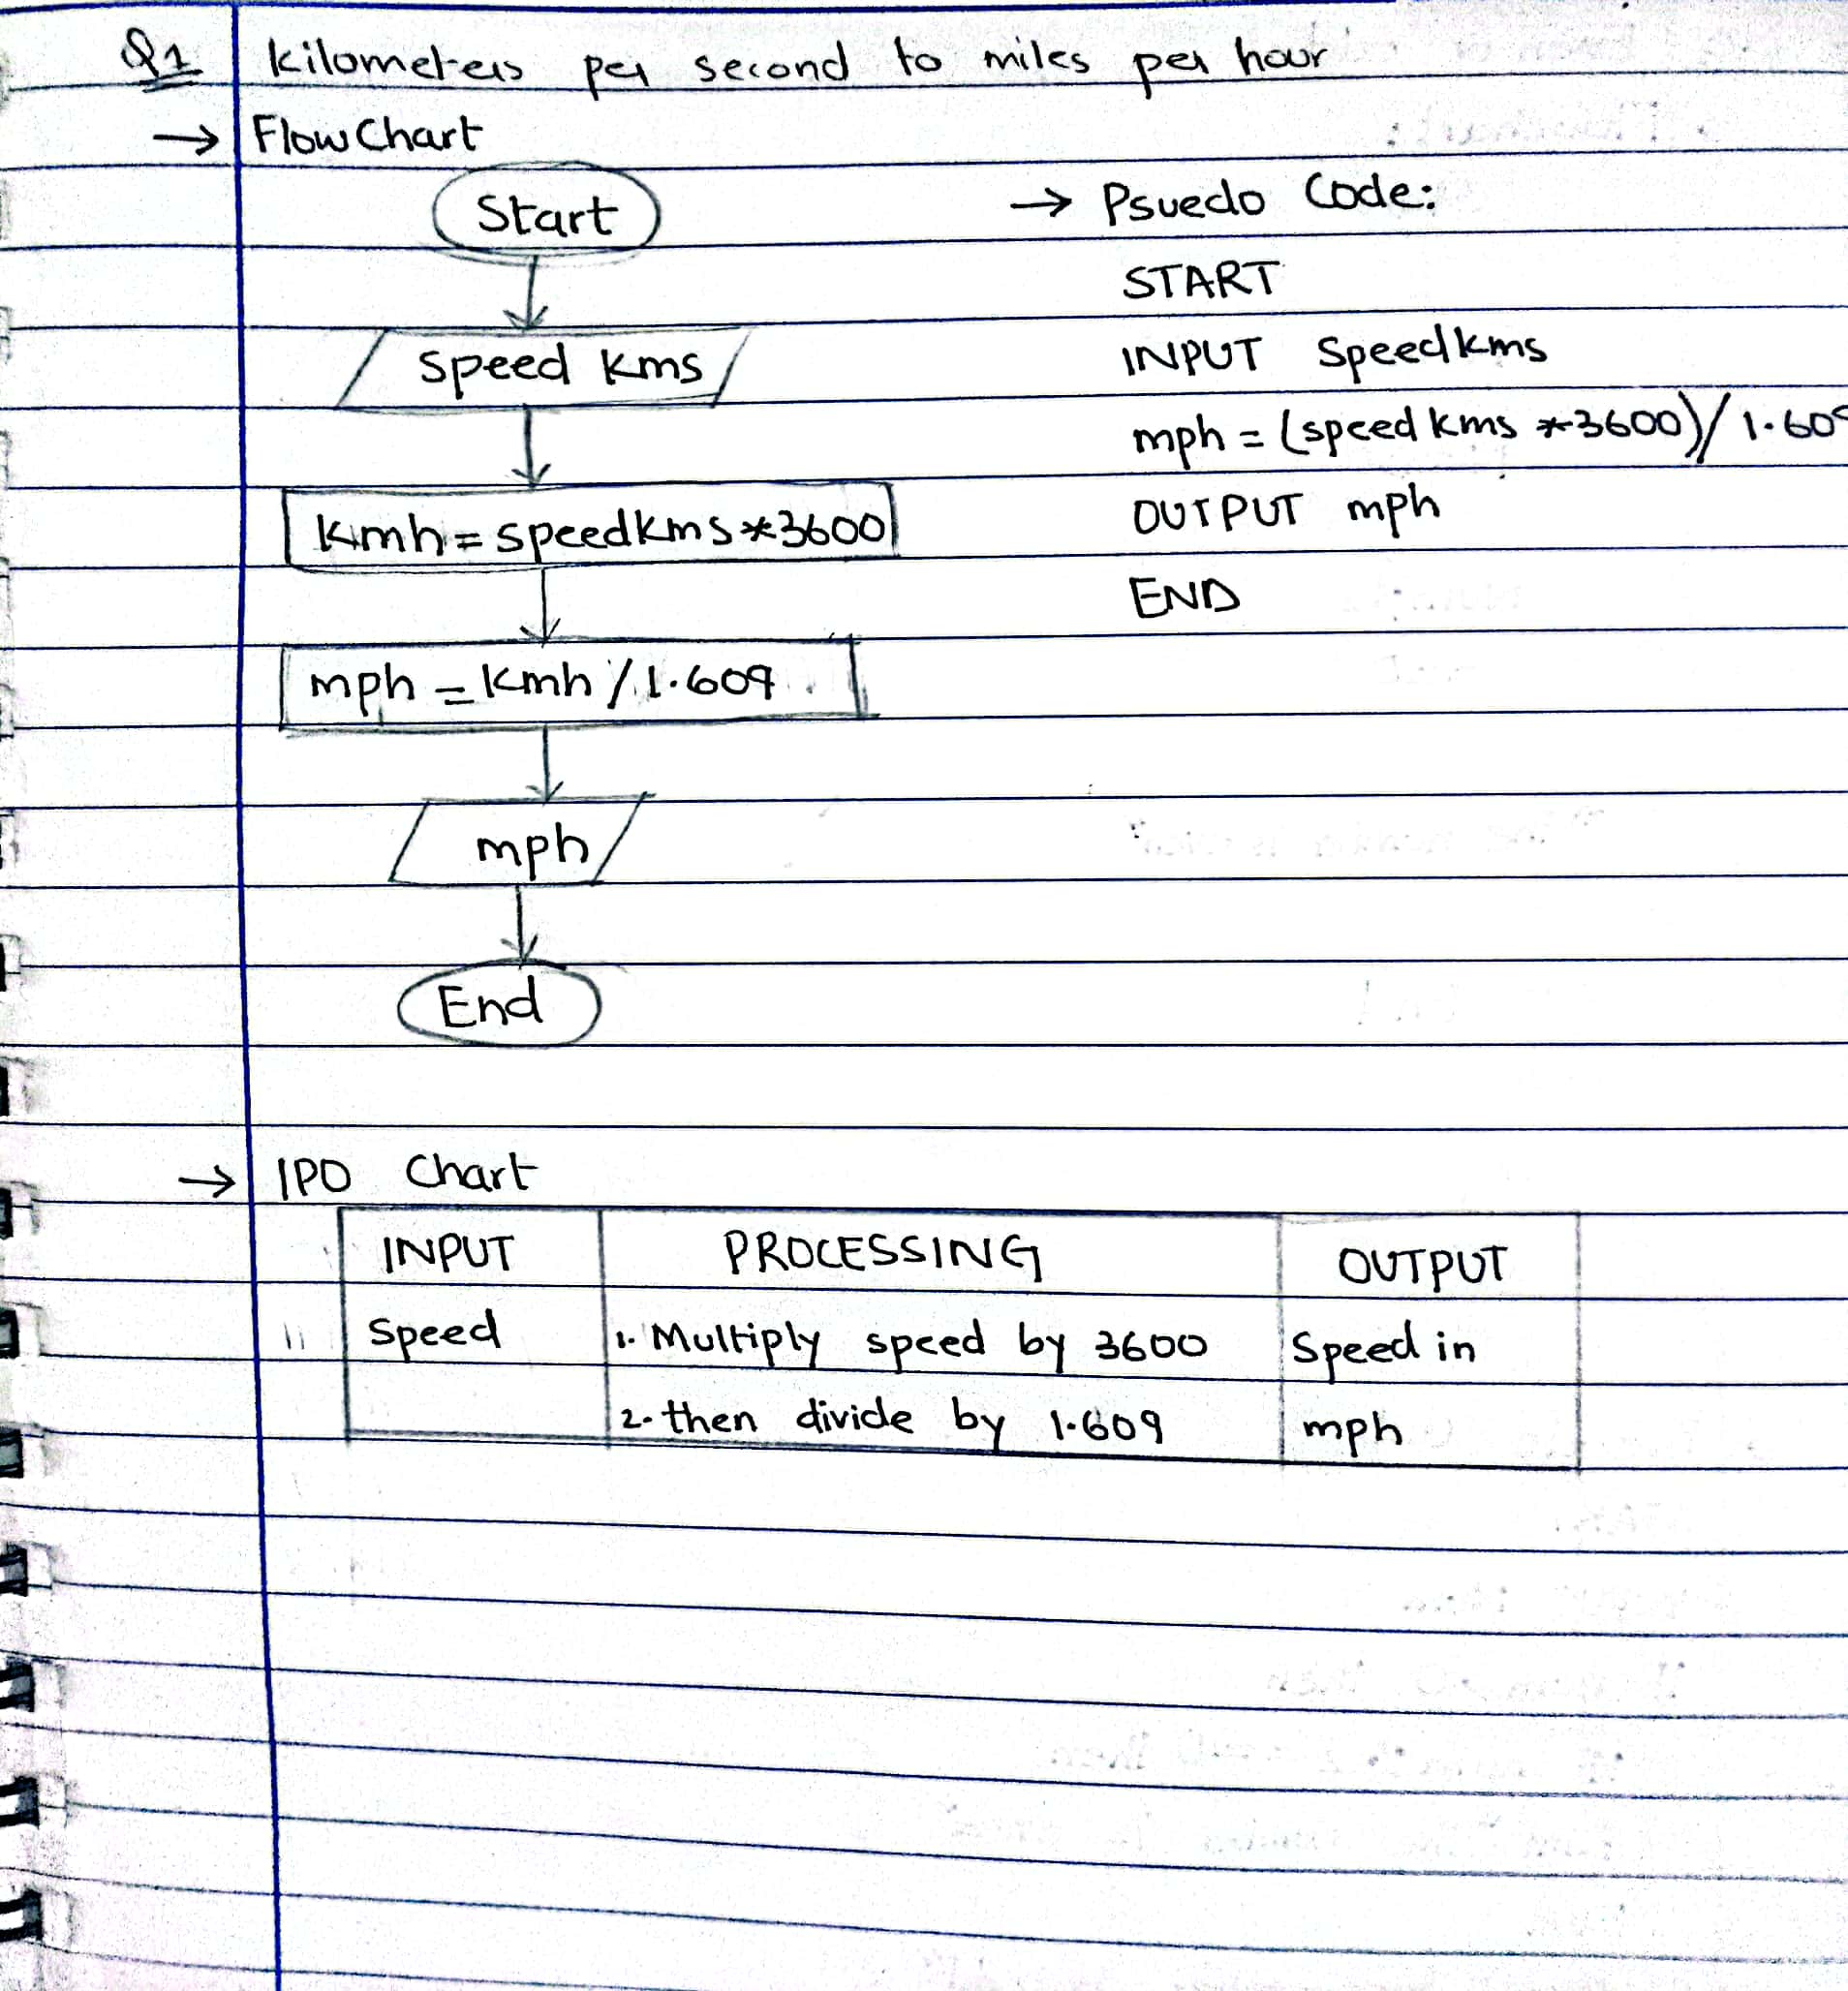 Q1 Kilometers per second to miles per hour
→ FlowChart
Start
Speed kms
kmh = speedkms *3600
mph = kmh / 1.609
mph
End
→ Psuedo Code:
START
INPUT Speedkms
mph = (speed kms *3600)/ 1.609
OUTPUT mph
END
→ IPO Chart
INPUT PROCESSING OUTPUT
Speed 1. Multiply speed by 3600 Speed in
2. then divide by 1.609 mph